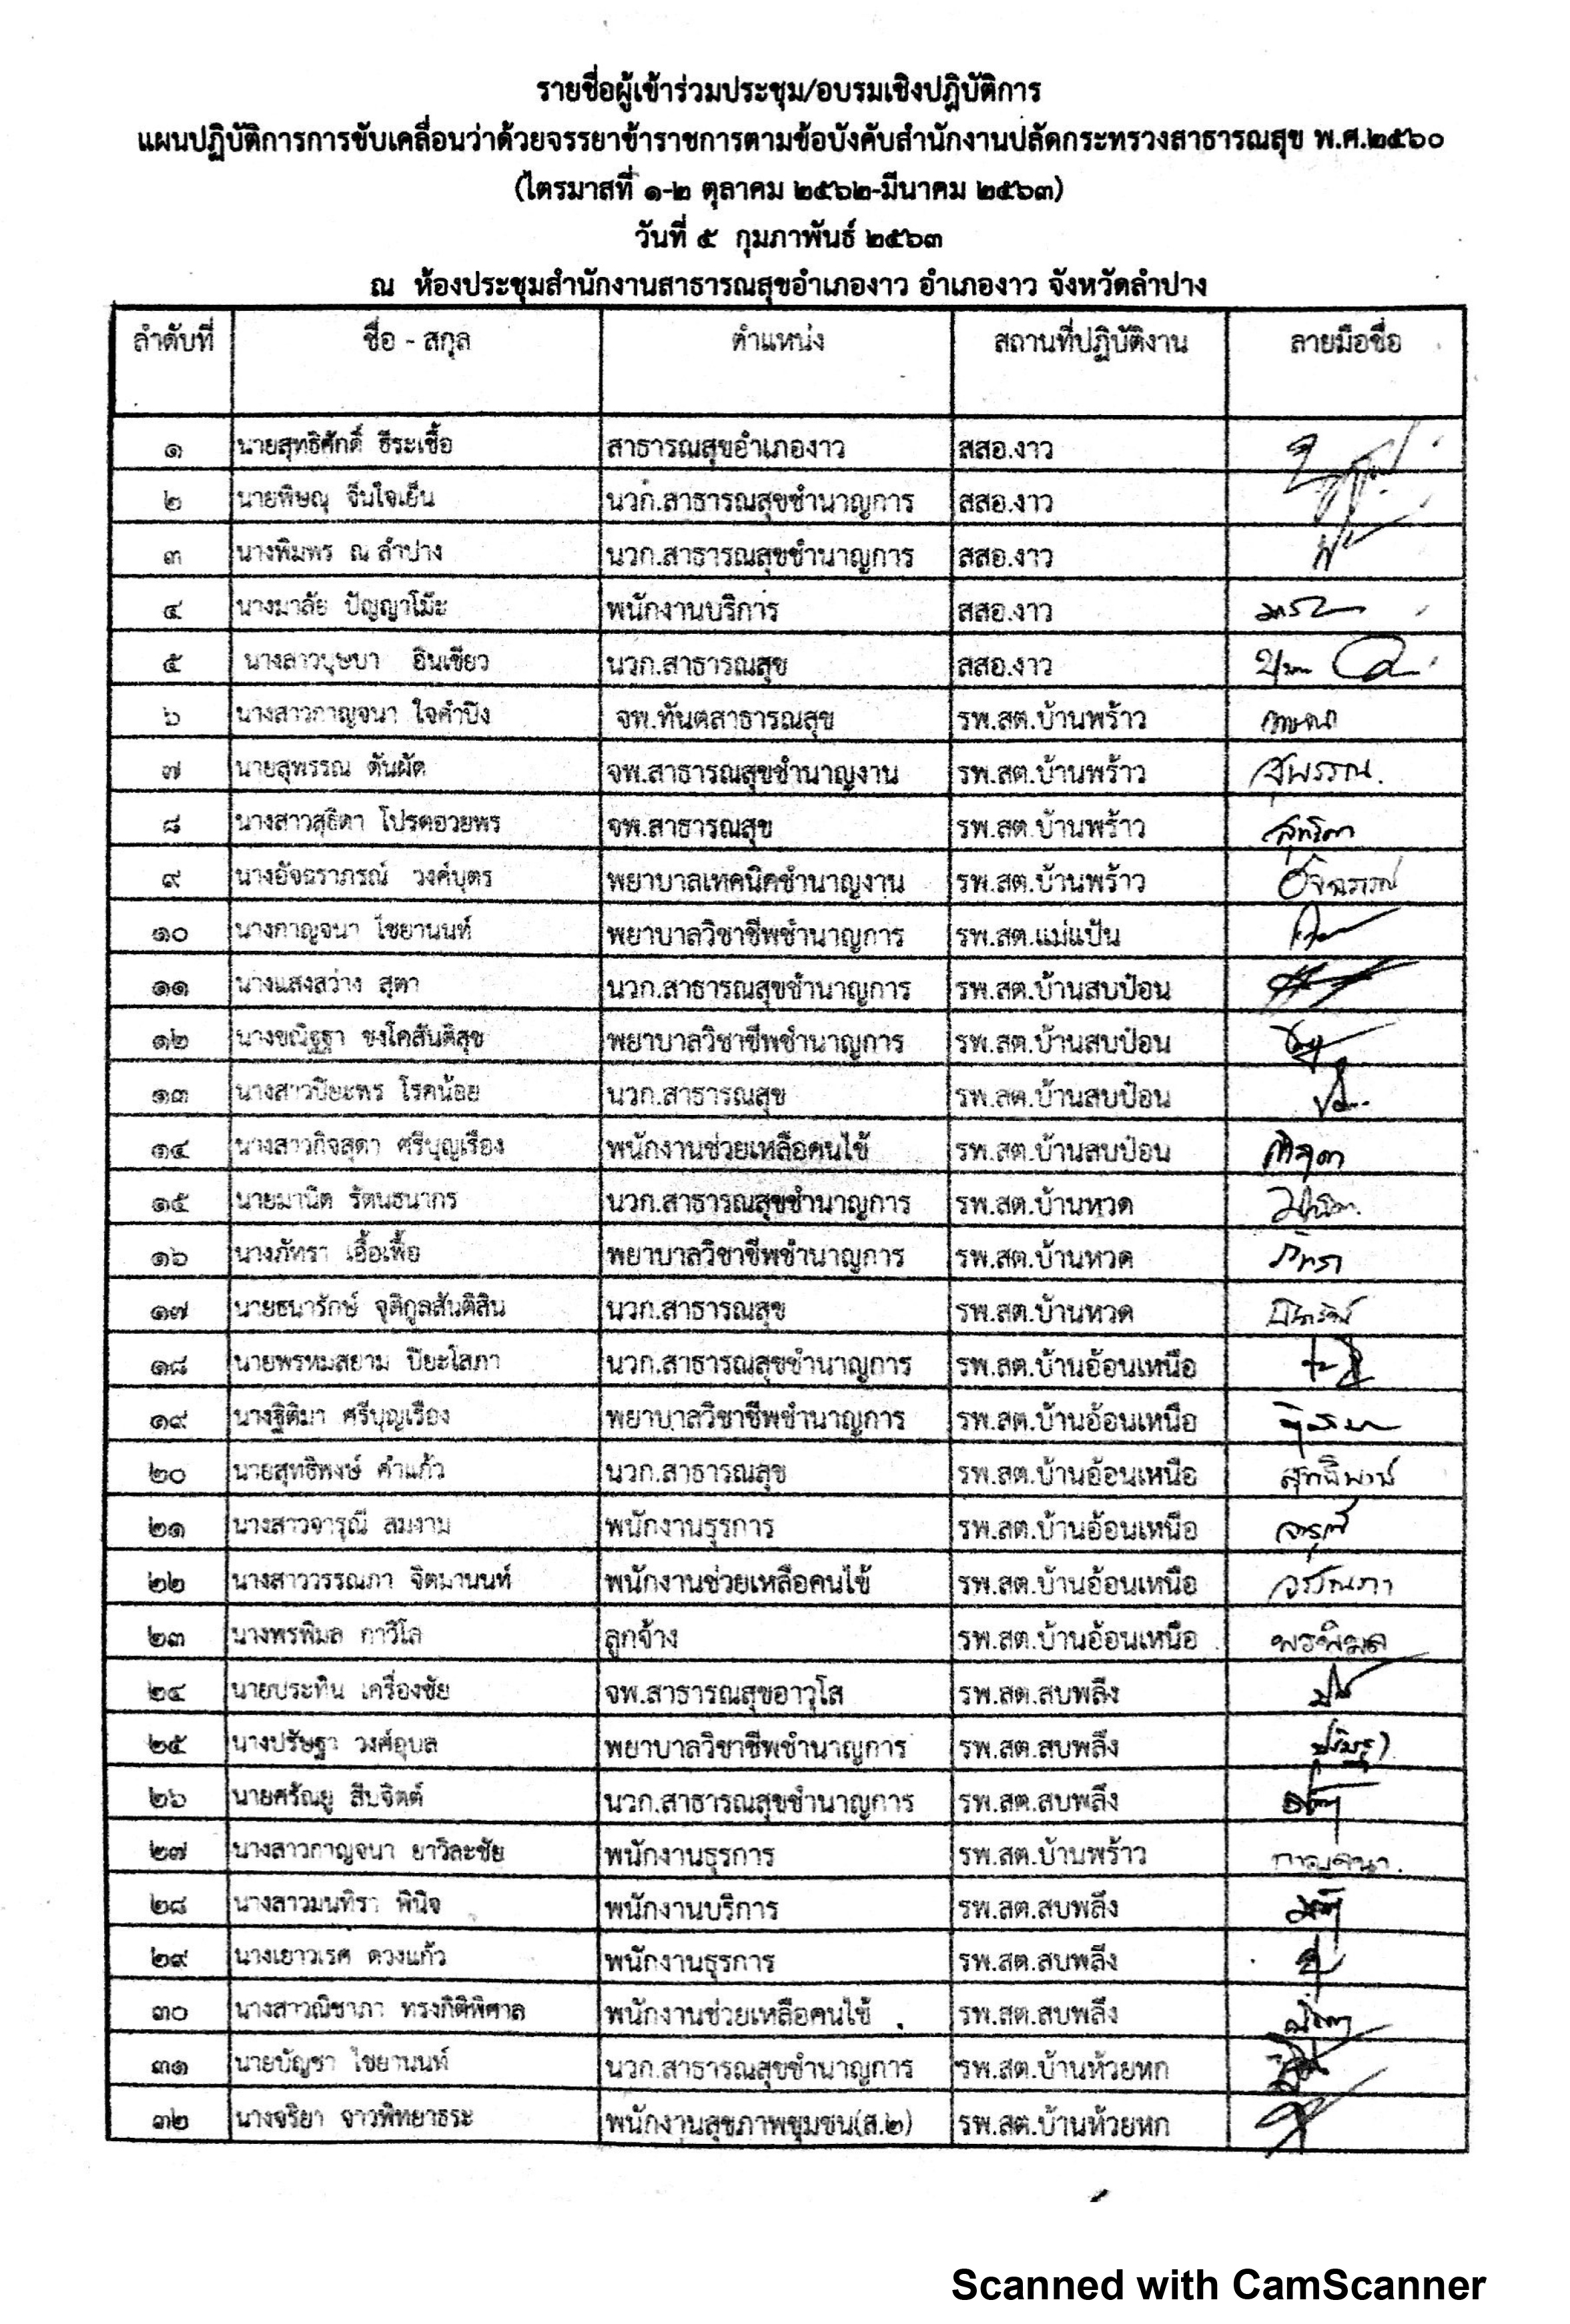 รายชื่อผู้เข้าร่วมประชุม/อบรมเชิงปฏิบัติการ
แผนปฏิบัติการการขับเคลื่อนว่าด้วยจรรยาข้าราชการตามข้อบังคับสำนักงานปลัดกระทรวงสาธารณสุข พ.ศ.๒๕๖๐
(ไตรมาสที่ ๑-๒ ตุลาคม ๒๕๖๒-มีนาคม ๒๕๖๓)
วันที่ ๕ กุมภาพันธ์ ๒๕๖๓
ณ ห้องประชุมสำนักงานสาธารณสุขอำเภองาว อำเภองาว จังหวัดลำปาง
ลำดับที่ ชื่อ - สกุล ตำแหน่ง สถานที่ปฏิบัติงาน ลายมือชื่อ
๑ นายสุทธิศักดิ์ ธีระเชื้อ สาธารณสุขอำเภองาว สสอ.งาว
๒ นายพิษณุ จีนใจเย็น นวก.สาธารณสุขชำนาญการ สสอ.งาว
๓ นางพิมพร ณ ลำปาง นวก.สาธารณสุขชำนาญการ สสอ.งาว
๔ นางมาลัย ปัญญาโม๊ะ พนักงานบริการ สสอ.งาว
๕ นางสาวบุษบา อินเขียว นวก.สาธารณสุข สสอ.งาว
๖ นางสาวกาญจนา ใจคำปิง จพ.ทันตสาธารณสุข รพ.สต.บ้านพร้าว
๗ นายสุพรรณ ต้นผัด จพ.สาธารณสุขชำนาญงาน รพ.สต.บ้านพร้าว สุพรรณ.
๘ นางสาวสุธิดา โปรดอวยพร จพ.สาธารณสุข รพ.สต.บ้านพร้าว
๙ นางอัจฉราภรณ์ วงค์บุตร พยาบาลเทคนิคชำนาญงาน รพ.สต.บ้านพร้าว
๑๐ นางกาญจนา ไชยานนท์ พยาบาลวิชาชีพชำนาญการ รพ.สต.แม่แป้น
๑๑ นางแสงสว่าง สุตา นวก.สาธารณสุขชำนาญการ รพ.สต.บ้านสบป๋อน
๑๒ นางขณิฐฐา ชงโคสันติสุข พยาบาลวิชาชีพชำนาญการ รพ.สต.บ้านสบป๋อน
๑๓ นางสาวปิยะพร โรคน้อย นวก.สาธารณสุข รพ.สต.บ้านสบป๋อน
๑๔ นางสาวกิจสุดา ศรีบุญเรือง พนักงานช่วยเหลือคนไข้ รพ.สต.บ้านสบป๋อน
๑๕ นายมานิต รัตนธนากร นวก.สาธารณสุขชำนาญการ รพ.สต.บ้านหวด
๑๖ นางภัทรา เอื้อเฟื้อ พยาบาลวิชาชีพชำนาญการ รพ.สต.บ้านหวด ภัทรา
๑๗ นายธนารักษ์ จุติกูลสันติสิน นวก.สาธารณสุข รพ.สต.บ้านหวด
๑๘ นายพรหมสยาม ปิยะโสภา นวก.สาธารณสุขชำนาญการ รพ.สต.บ้านอ้อนเหนือ
๑๙ นางฐิติมา ศรีบุญเรือง พยาบาลวิชาชีพชำนาญการ รพ.สต.บ้านอ้อนเหนือ
๒๐ นายสุทธิพงษ์ คำแก้ว นวก.สาธารณสุข รพ.สต.บ้านอ้อนเหนือ
๒๑ นางสาวจารุณี สมงาม พนักงานธุรการ รพ.สต.บ้านอ้อนเหนือ จารุณี
๒๒ นางสาววรรณภา จิตมานนท์ พนักงานช่วยเหลือคนไข้ รพ.สต.บ้านอ้อนเหนือ วรรณภา
๒๓ นางพรพิมล กาวิโล ลูกจ้าง รพ.สต.บ้านอ้อนเหนือ พรพิมล
๒๔ นายประทิน เครื่องชัย จพ.สาธารณสุขอาวุโส รพ.สต.สบพลึง
๒๕ นางปรัษฐา วงศ์อุบล พยาบาลวิชาชีพชำนาญการ รพ.สต.สบพลึง
๒๖ นายศรัณยู สืบจิตต์ นวก.สาธารณสุขชำนาญการ รพ.สต.สบพลึง
๒๗ นางสาวกาญจนา ยาวิละชัย พนักงานธุรการ รพ.สต.บ้านพร้าว กาญจนา.
๒๘ นางสาวมนทิรา พินิจ พนักงานบริการ รพ.สต.สบพลึง
๒๙ นางเยาวเรศ ดวงแก้ว พนักงานธุรการ รพ.สต.สบพลึง
๓๐ นางสาวณิชาภา ทรงกิติพิศาล พนักงานช่วยเหลือคนไข้ รพ.สต.สบพลึง
๓๑ นายบัญชา ไชยานนท์ นวก.สาธารณสุขชำนาญการ รพ.สต.บ้านห้วยหก
๓๒ นางจริยา จาวพิทยาธระ พนักงานสุขภาพชุมชน(ส.๒) รพ.สต.บ้านห้วยหก
Scanned with CamScanner